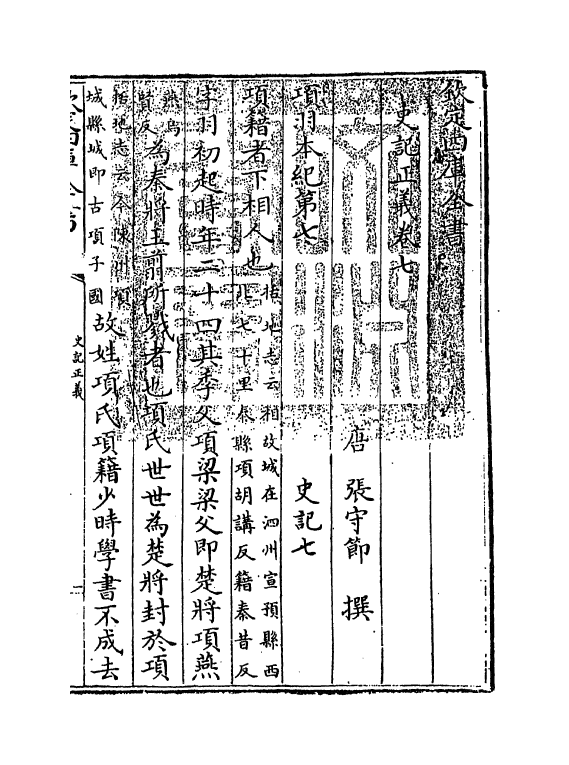 欽定四庫全書
史記正義卷七
唐 張守節 撰
項羽本紀第七 史記七
項籍者下相人也括地志云相故城在泗州宣預縣西北七十里秦縣項胡講反籍秦昔反
字羽初起時年二十四其季父項梁梁父即楚將項燕
燕烏賢反為秦將王翦所戮者也項氏世世為楚將封於項
括地志云今陳州項城縣城即古項子國故姓項氏項籍少時學書不成去
欽定四庫全書
史記正義